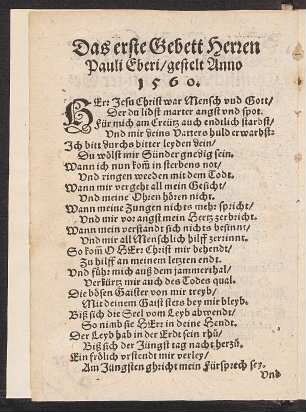 Das erste Gebett Herren
Pauli Eberi/gestelt Anno
1560.
HErr Jesu Christ war Mensch vnd Gott/
Der du lidst marter angst vnd spot.
Für mich am Creütz auch endtlich starbst/
Vnd mir deins Vatters huld erwarbst:
Jch bitt durchs bitter leyden dein/
Du wölst mir Sünder gnedig sein.
Wann ich nun kom̃ in sterbens not/
Vnd ringen werden mit dem Todt.
Wann mir vergeht all mein Gesicht/
Vnd meine Ohren hören nicht.
Wann meine Zungen nichts mehr spricht/
Vnd mir vor angst mein Hertz zerbricht.
Wann mein verstandt sich nichts besinnt/
Vnd mir all Menschlich hilff zerrinnt.
So kom̃ O HErr Christ mir behendt/
Zu hilff an meinem letzten endt.
Vnd führ mich auß dem jammerthal/
Verkürtz mir auch des Todes qual.
Die bösen Gaister von mir treyb/
Mit deinem Gaist stets bey mir bleyb.
Biß sich die Seel vom Leyb abwendt/
So nimb sie HErr in deine Hendt.
Der Leyb hab in der Erdt sein rhů/
Biß sich der Jüngst tag nacht herzů.
Ein frölich vrstendt mir verley/
Am Jüngsten ghricht mein Fürsprech sey.
Vnd